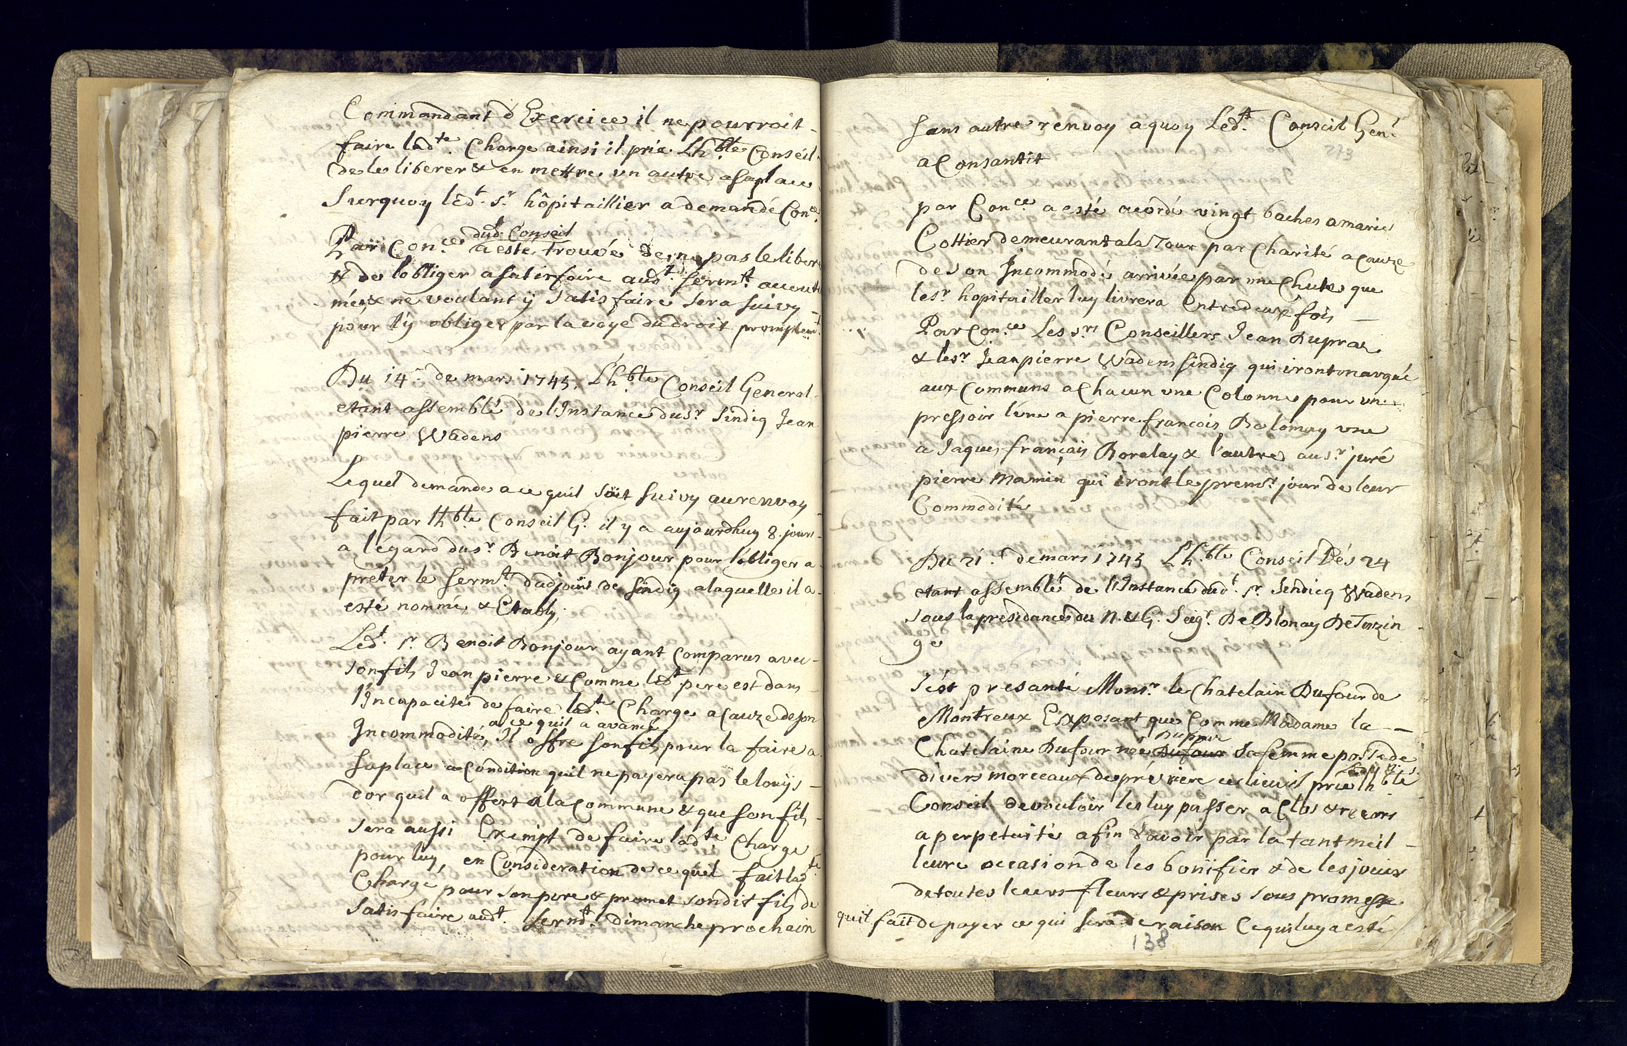 Commandant d'Exercice il ne pourroit
faire ladte. Charge ainsi il prie Lh.ble Conseil
de le liberer & en mettre un autre a sa place
Surquoy ledt. Sr. hôpitaillier a demandé Conce.
dud. Conseil
Par Conce. a esté trouvé de ne pas le liberer
& de l'obliger a satisfaire audt. Sermt. accoutu
mée, & ne voulant y satisfaire sera suivy
pour l'y obliger par la voye du droit promptemt.
Du 14e. de mars 1745, Lh.ble Conseil General
etant assemblé de l'Instance du Sr. Sindiq Jean
pierre Wadens
Lequel demande a ce quil soit suivy au renvoy
fait par lh.ble Conseil G. il y a aujourdhuy 8. jours
a legard du Sr. Benoit Bonjour pour l'obliger a
prêter le Sermt. de Sindiq alaquelle il a
esté nommé & Etably.
Ledt. Sr. Benoit Bonjour ayant Comparus avec
son fils Jean pierre & Comme ledt. pere est dans
l'Incapacité de faire ladt. Charge a cauze de son
a ce quil a avancé
Incommodité, Il offre son fils pour la faire a
sa place a Condition quil ne payera pas le louijs
dor quil a offert a la Commune & que son fils
sera aussi Exempt de faire ladte Charge
pour luy, en Consideration de ce quil fait ladte.
Charge pour son pere & promet son dit fils de
satisfaire audt. Sermt. dimanche prochain
sans autre renvoy a quoy Ledt. Conseil Gene
273
a Consantit
par Conce a esté acordé vingt baches a marie
Cottier demeurant a la Tour par Charité a cauze
de son Incommodé arrivée par une Chute que
le Sr. hopitailler luy livrera Entre deux fois
Par Conce. Les Srs Conseillers Jean Dupraz
& le Sr. Jeanpierre Wadens sindiq qui iront marqué
aux Communs a Chacun une Colonne pour une
pressoir l'une a pierre francois Dalomay une
a Jaques françois Borelay & l'autre au Sr. juré
pierre Mamin, qui iront le premr. jour de leur
Commodité
Du 21e. de mars 1745 Lh.ble Conseil Dés 24
etant assemblé de l'Instance dudt. Sr. Sendicq Wadens
sous la présidance du N. & G. Seigr. De Blonay De Turzin
ge
S'est presanté Monsr. le Chatelain Dufour de
Montreux Exposant que Comme Madame la
Dupraz
Chatelaine Dufour née Dufour sa femme possede
divers morceaux de prévière
Conseil de vouloir les luy passer a Clos & record
a perpetuité afin d'avoir par la tant meil
leure occasion de les bonifier & de les jouïr
de toutes leurs fleurs & prises sous promesse
quil fait de payer ce qui sera de raison Ce qui luy a esté
138